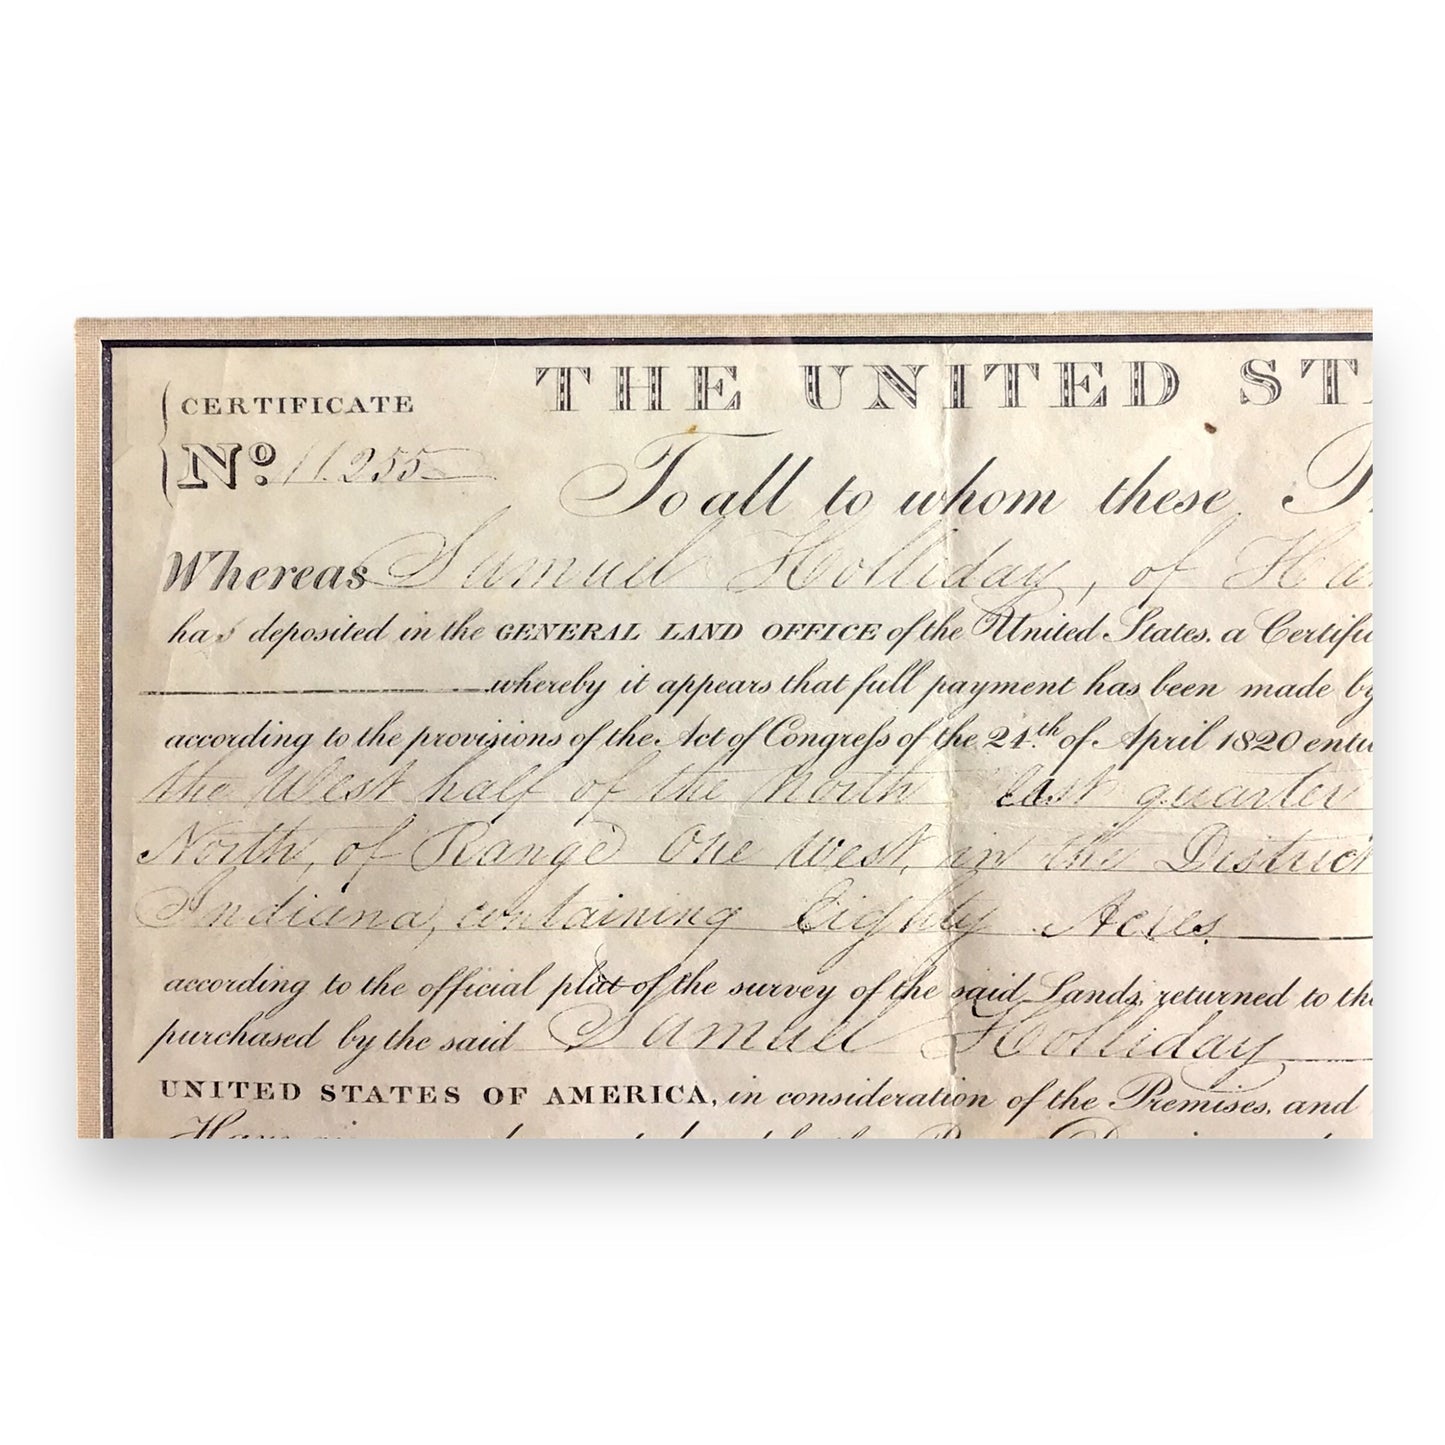 CERTIFICATE
No. 11.255
THE UNITED STA
To all to whom these
Whereas Samuel Holliday, of Ha
has deposited in the GENERAL LAND OFFICE of the United States, a Certific
whereby it appears that full payment has been made by
according to the provisions of the Act of Congreſs of the 24th of April 1820 entit
the West half of the North East quarter
North, of Range One West, in the District
Indiana, containing Eighty Acres.
according to the official plat of the survey of the said Lands, returned to the
purchased by the said Samuel Holliday
UNITED STATES OF AMERICA, in consideration of the Premises, and